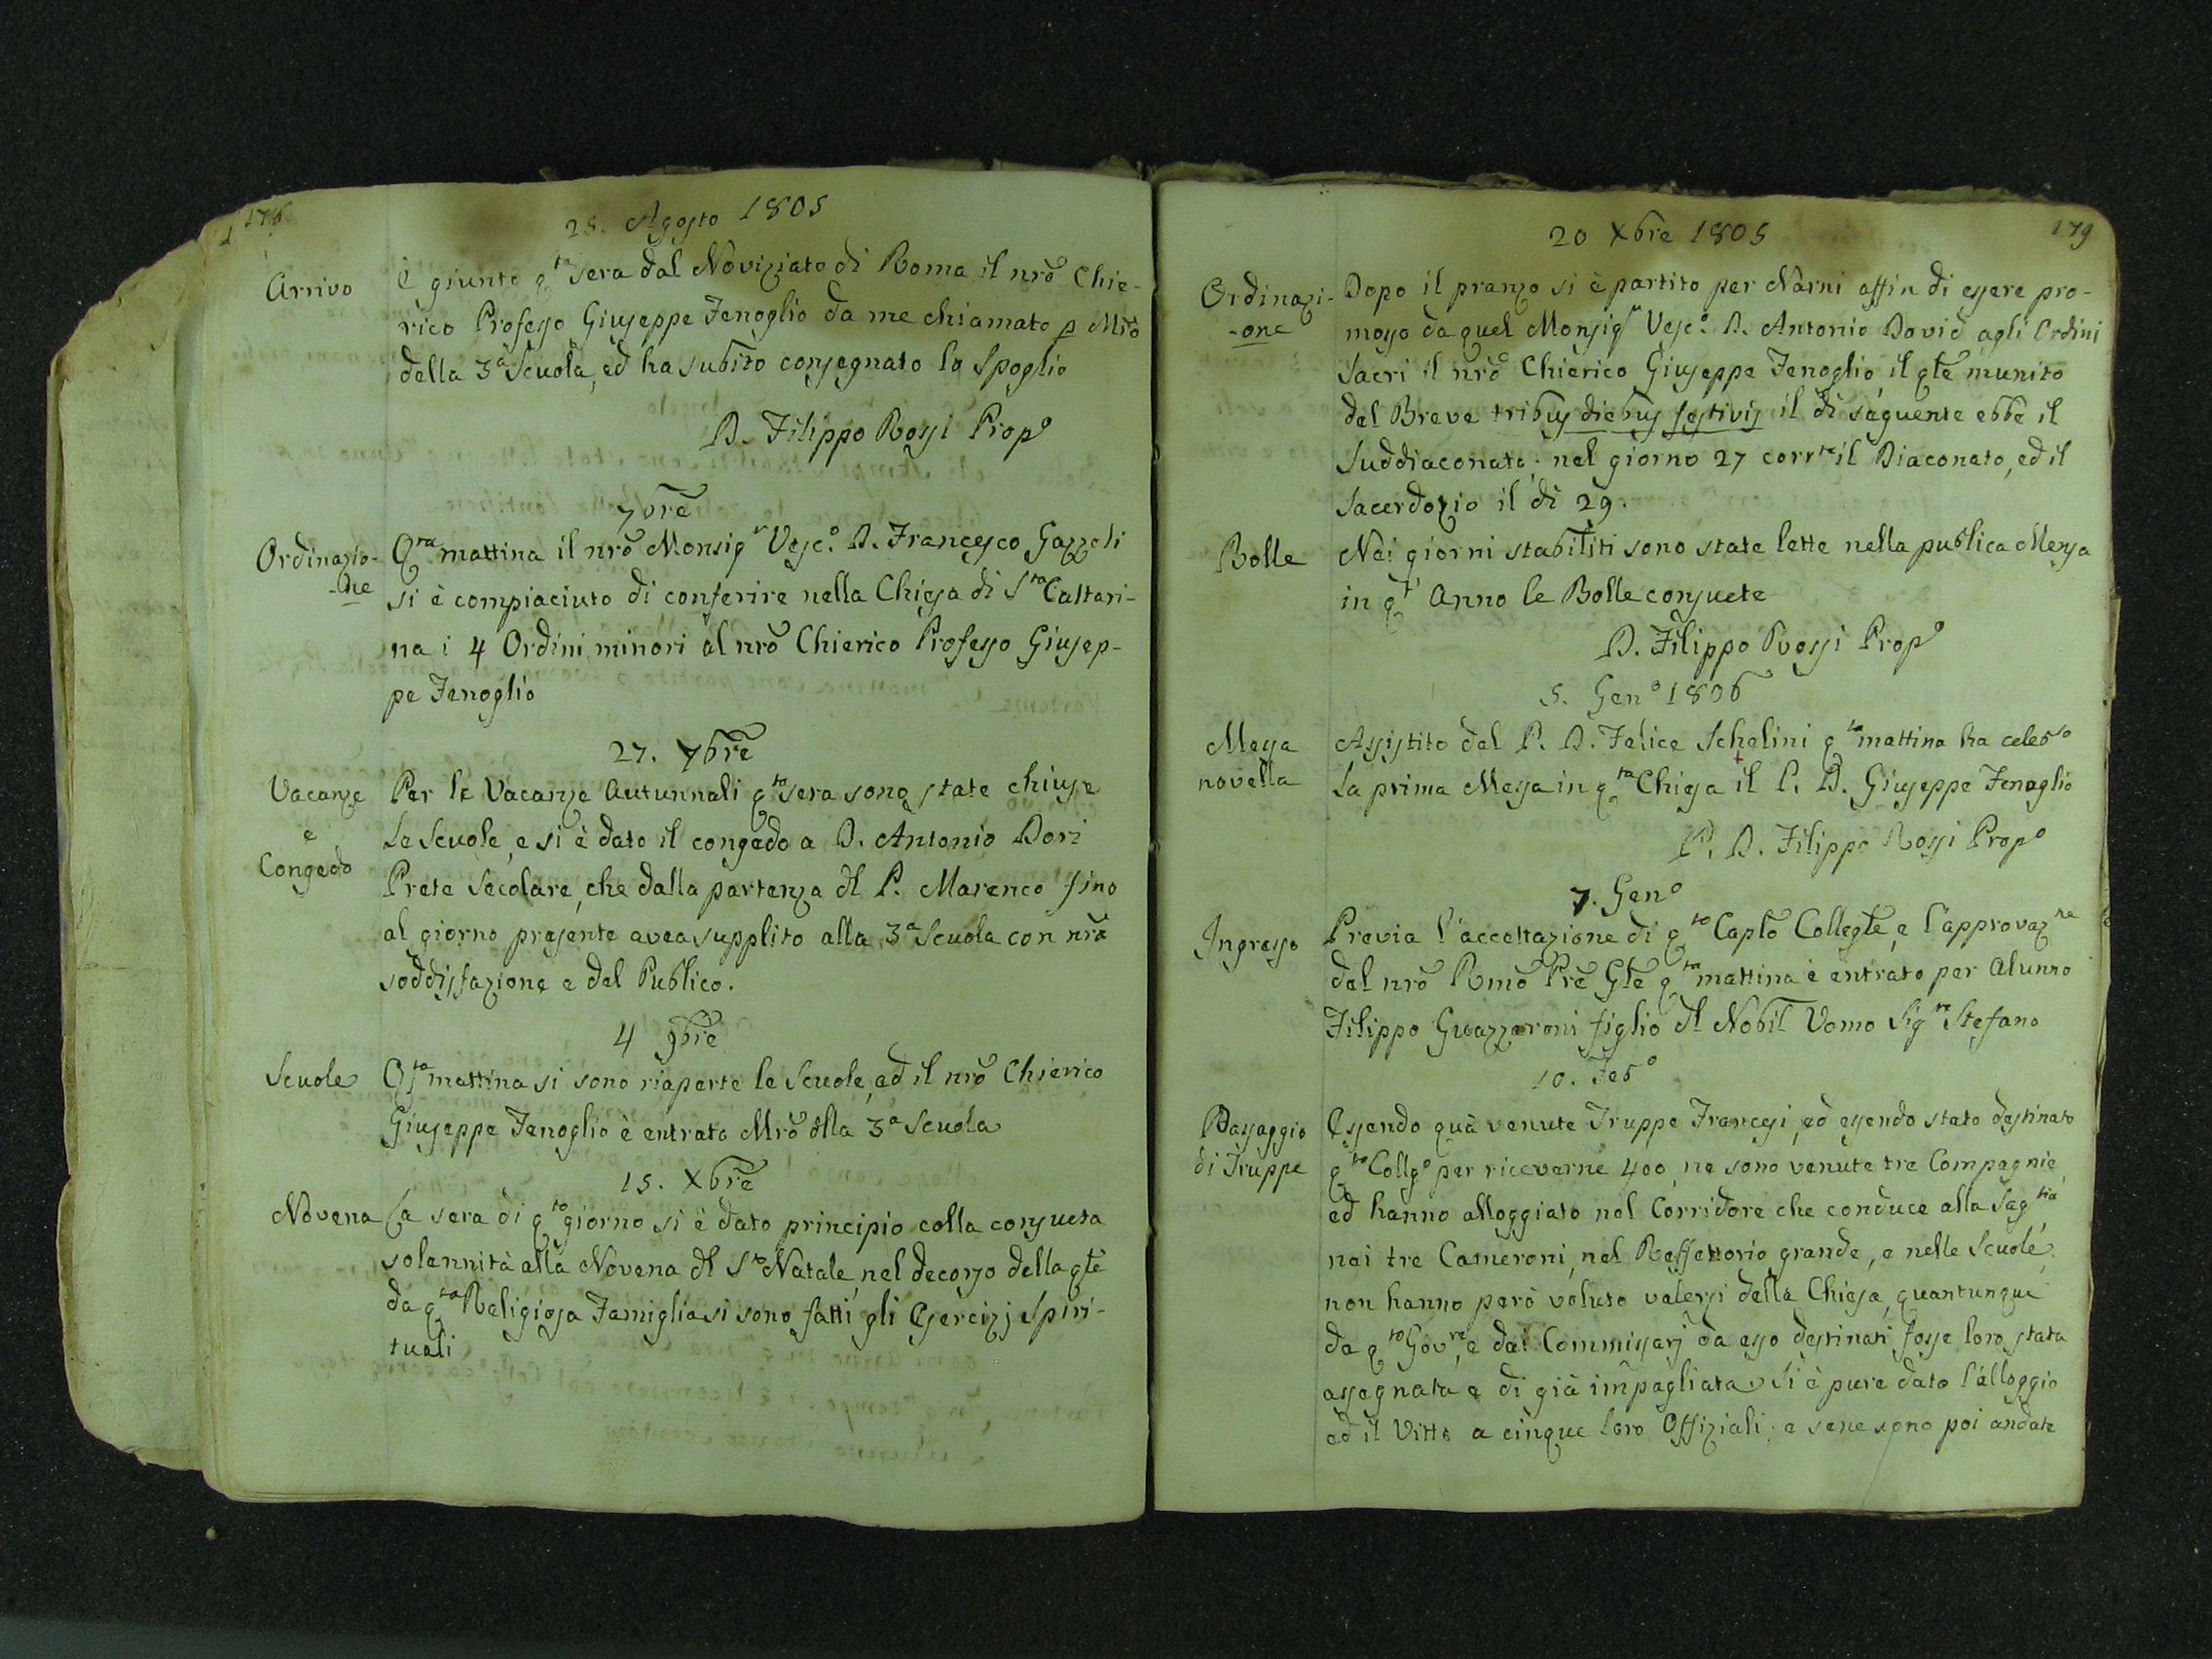 176
28. Agosto 1805
Arrivo
È giunto qta sera dal Noviziato di Roma il nrõ Chie-
rico Professo Giuseppe Fenoglio da me chiamato p Mrõ
della 3a Scuola, ed ha subito consegnato lo Spoglio
D. Filippo Rossi Propo
7bre
Ordinazio-
-ne
Qta mattina il nrõ Monsigr Vesco. D. Francesco Gazzoli
si è compiaciuto di conferire nella Chiesa di Sta Cattari-
na i 4 Ordini minori al nrõ Chierico Professo Giusep-
pe Fenoglio
27. 7bre
Vacanze
e
Congedo
Per le Vacanze Autunnali qta sera sono state chiuse
le Scuole, e si è dato il congedo a D. Antonio Dori
Prete Secolare, che dalla partenza dl P. Marenco fino
al giorno presente avea supplito alla 3a Scuola con nrã
soddisfazione e del Publico.
4 9bre
Scuole
Qta mattina si sono riaperte le Scuole, ed il nrõ Chierico
Giuseppe Fenoglio è entrato Mrõ dlla 3a Scuola
15. Xbre
Novena
La sera di qto giorno si è dato principio colla consueta
solennità alla Novena dl Sto Natale, nel decorso della qle
da qta Religiosa Famiglia si sono fatti gli Esercizj Spiri-
tuali
179
20 Xbre 1805
Ordinazi-
-one
Dopo il pranzo si è partito per Narni affin di essere pro-
mosso da quel Monsigr Vesco. D. Antonio David agli Ordini
Sacri il nrõ Chierico Giuseppe Fenoglio, il qle munito
del Breve tribus diebus festivis il dì seguente ebbe il
Suddiaconato; nel giorno 27 corrte il Diaconato, ed il
Sacerdozio il dì 29.
Bolle
Nei giorni stabiliti sono state lette nella publica Mensa
in qt' Anno le Bolle consuete
D. Filippo Rossi Propo
5. Geno 1806
Messa
novella
Assistito dal P. D. Felice Schelini qta mattina ha celebto
la prima Messa in qta Chiesa il P. D. Giuseppe Fenoglio
P. D. Filippo Rossi Propo
7. Geno
Ingresso
Previa l'accettazione di qto Caplõ Collegle, e l'approvazne
del nrõ Rmõ Prẽ Gle qta mattina è entrato per Alunno
Filippo Guazzaroni figlio dl Nobil Uomo Sigre Stefano
10. Febo
Passaggio
di Truppe
Essendo quà venute Truppe Francesi, ed essendo stato destinato
qto Collgo per riceverne 400, ne sono venute tre Compagnie,
ed hanno alloggiato nel Corridore che conduce alla Sagtia,
nei tre Cameroni, nel Reffettorio grande, e nelle Scuole;
non hanno però voluto valersi della Chiesa, quantunque
da qto Govre, e dai Commissarj da esso destinati fosse loro stata
assegnata e di già impagliata. Si è pure dato l'alloggio
ed il Vitto a cinque loro Offiziali; e se ne sono poi andate